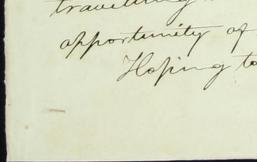 travelling
opportunity of
Hoping to